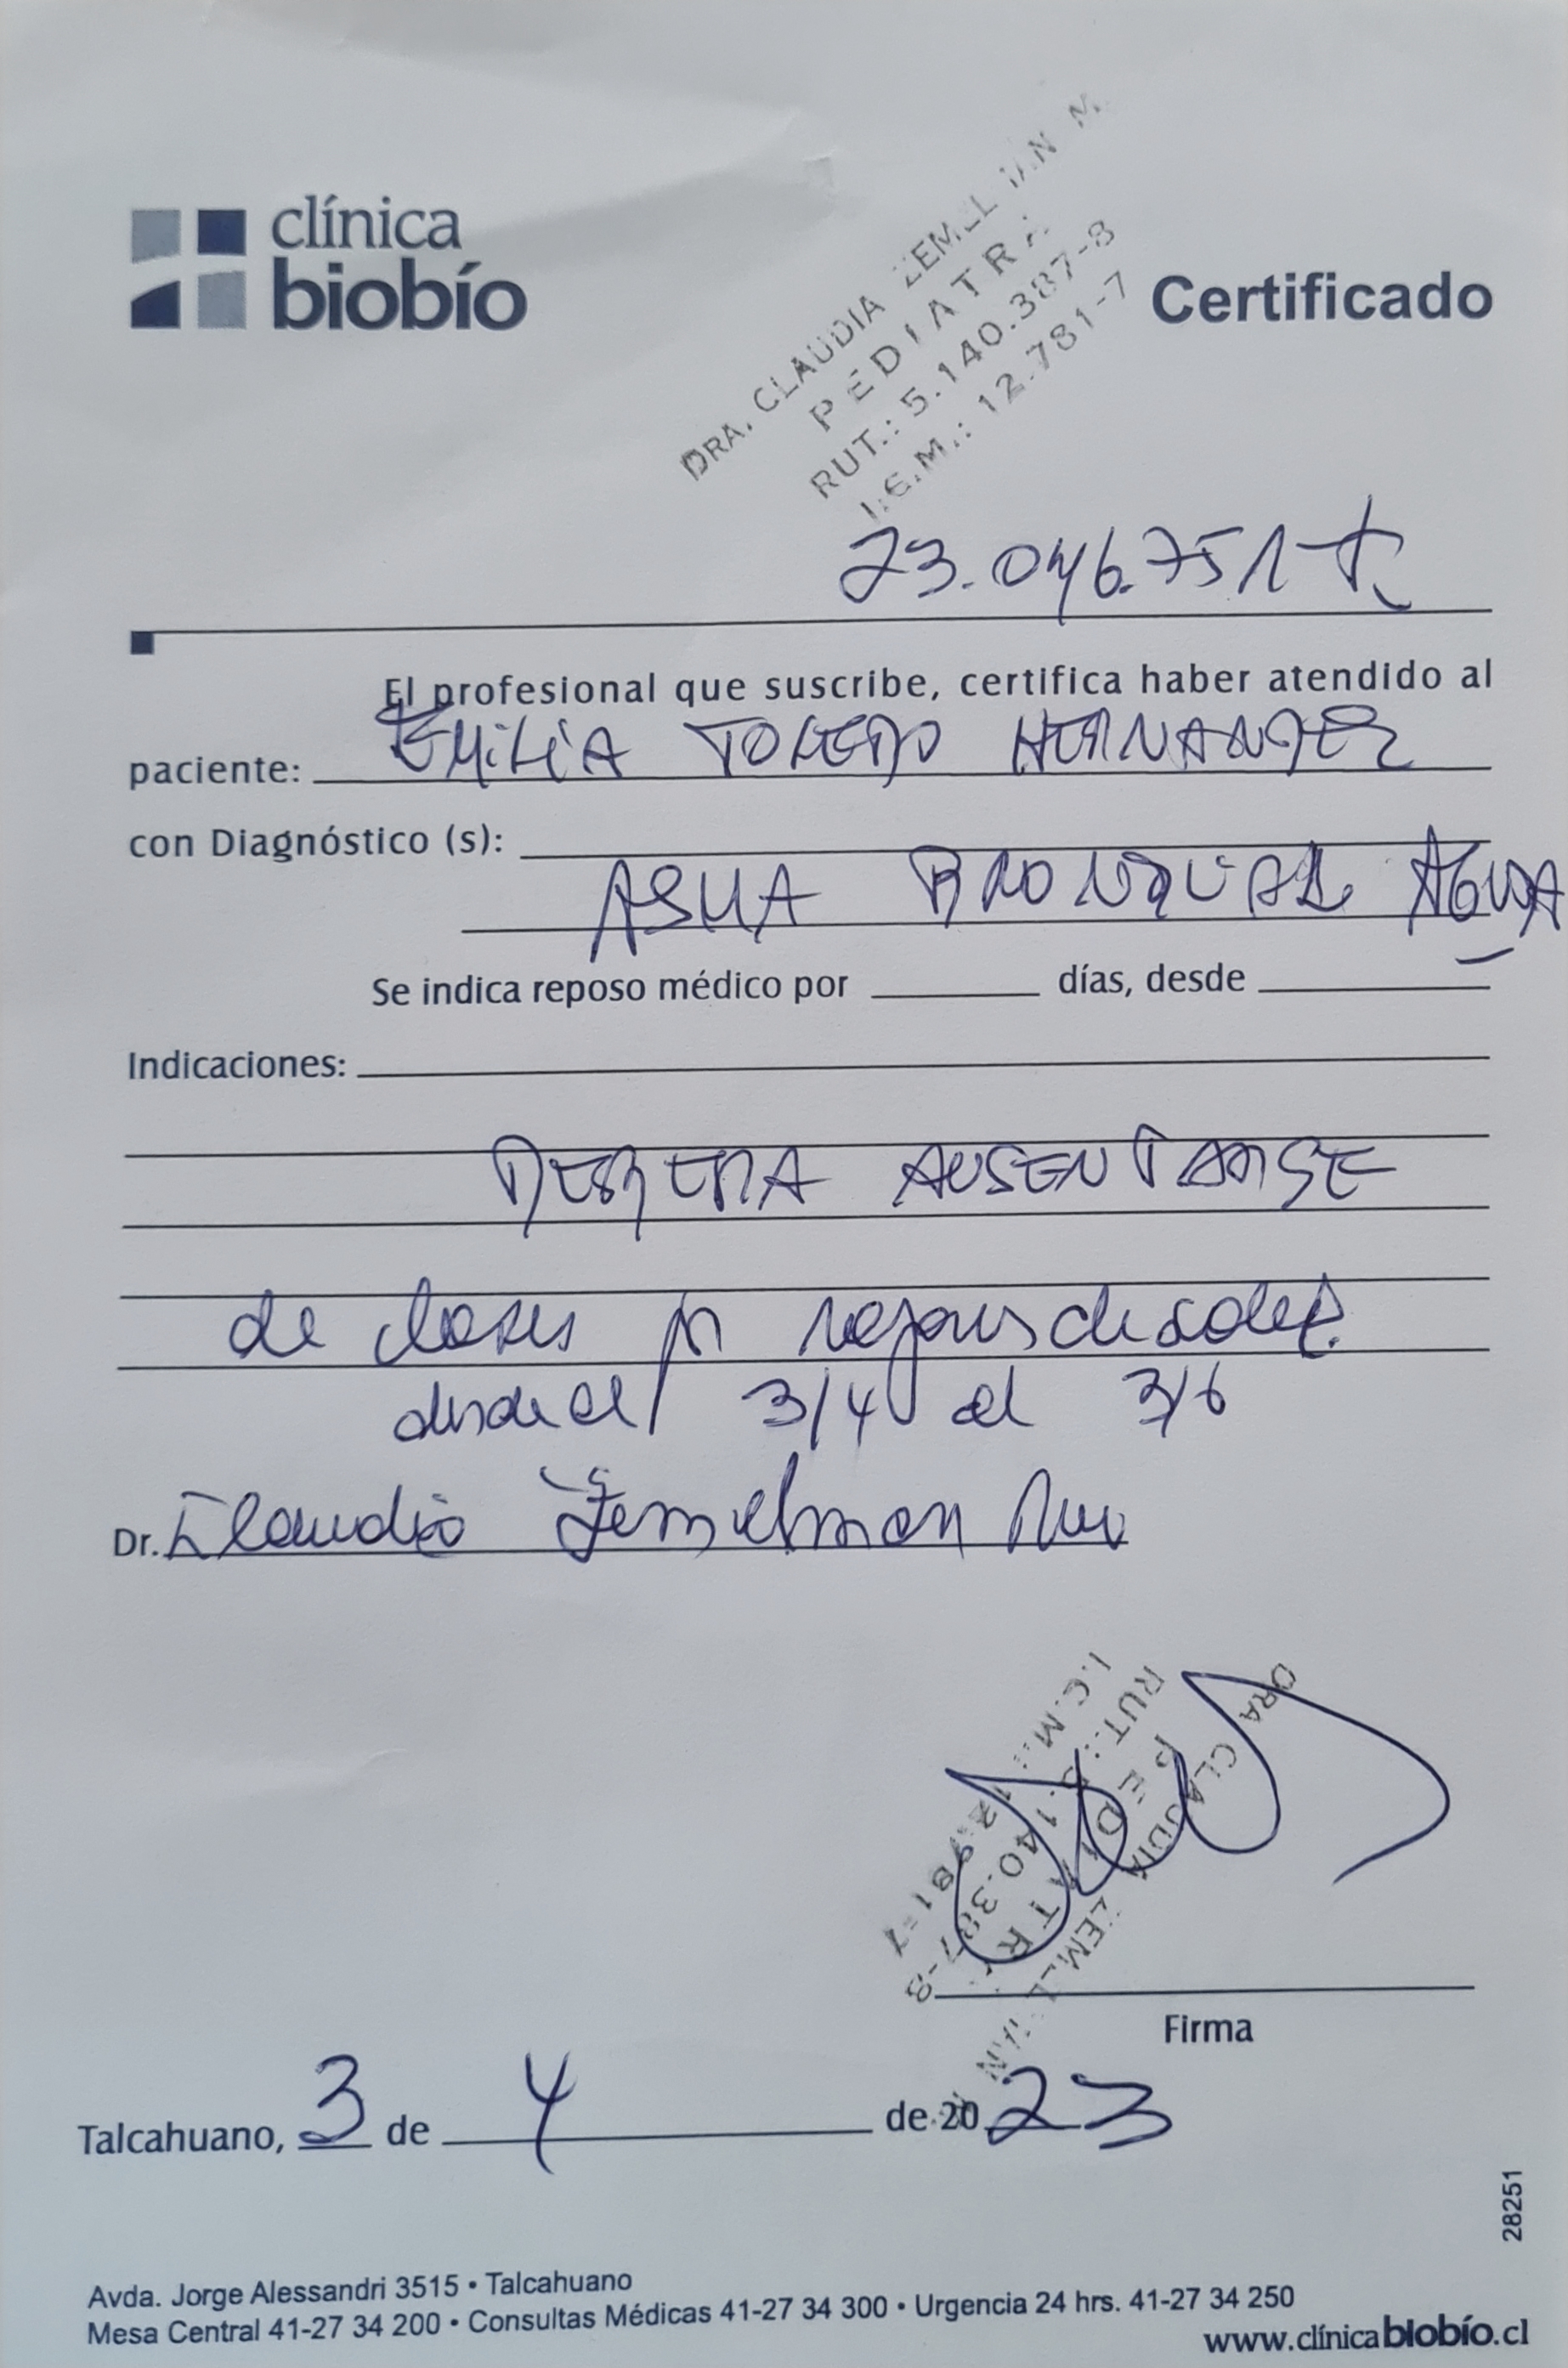 clínica
biobío
DRA. CLAUDIA ZEMELMAN M.
PEDIATRA
RUT.: 5.140.387-8
I.C.M.: 12.781-7
Certificado
23.046.751-K
El profesional que suscribe, certifica haber atendido al
paciente: EMILIA TOLEDO HERNANDEZ
con Diagnóstico (s):
ASMA BRONQUIAL AGUDA
Se indica reposo médico por días, desde
Indicaciones:
DEBERA AUSENTARSE
de clases
desde el 3/4 al 3/6
Dr. Claudia Zemelman
DRA CLAUDIA ZEMELMAN M
PEDIATRA
RUT.: 5.140.387-8
I.C.M.: 12.781-7
Firma
Talcahuano, 3 de 4 de 2023
28251
Avda. Jorge Alessandri 3515 • Talcahuano
Mesa Central 41-27 34 200 • Consultas Médicas 41-27 34 300 • Urgencia 24 hrs. 41-27 34 250
www.clínicabiobío.cl